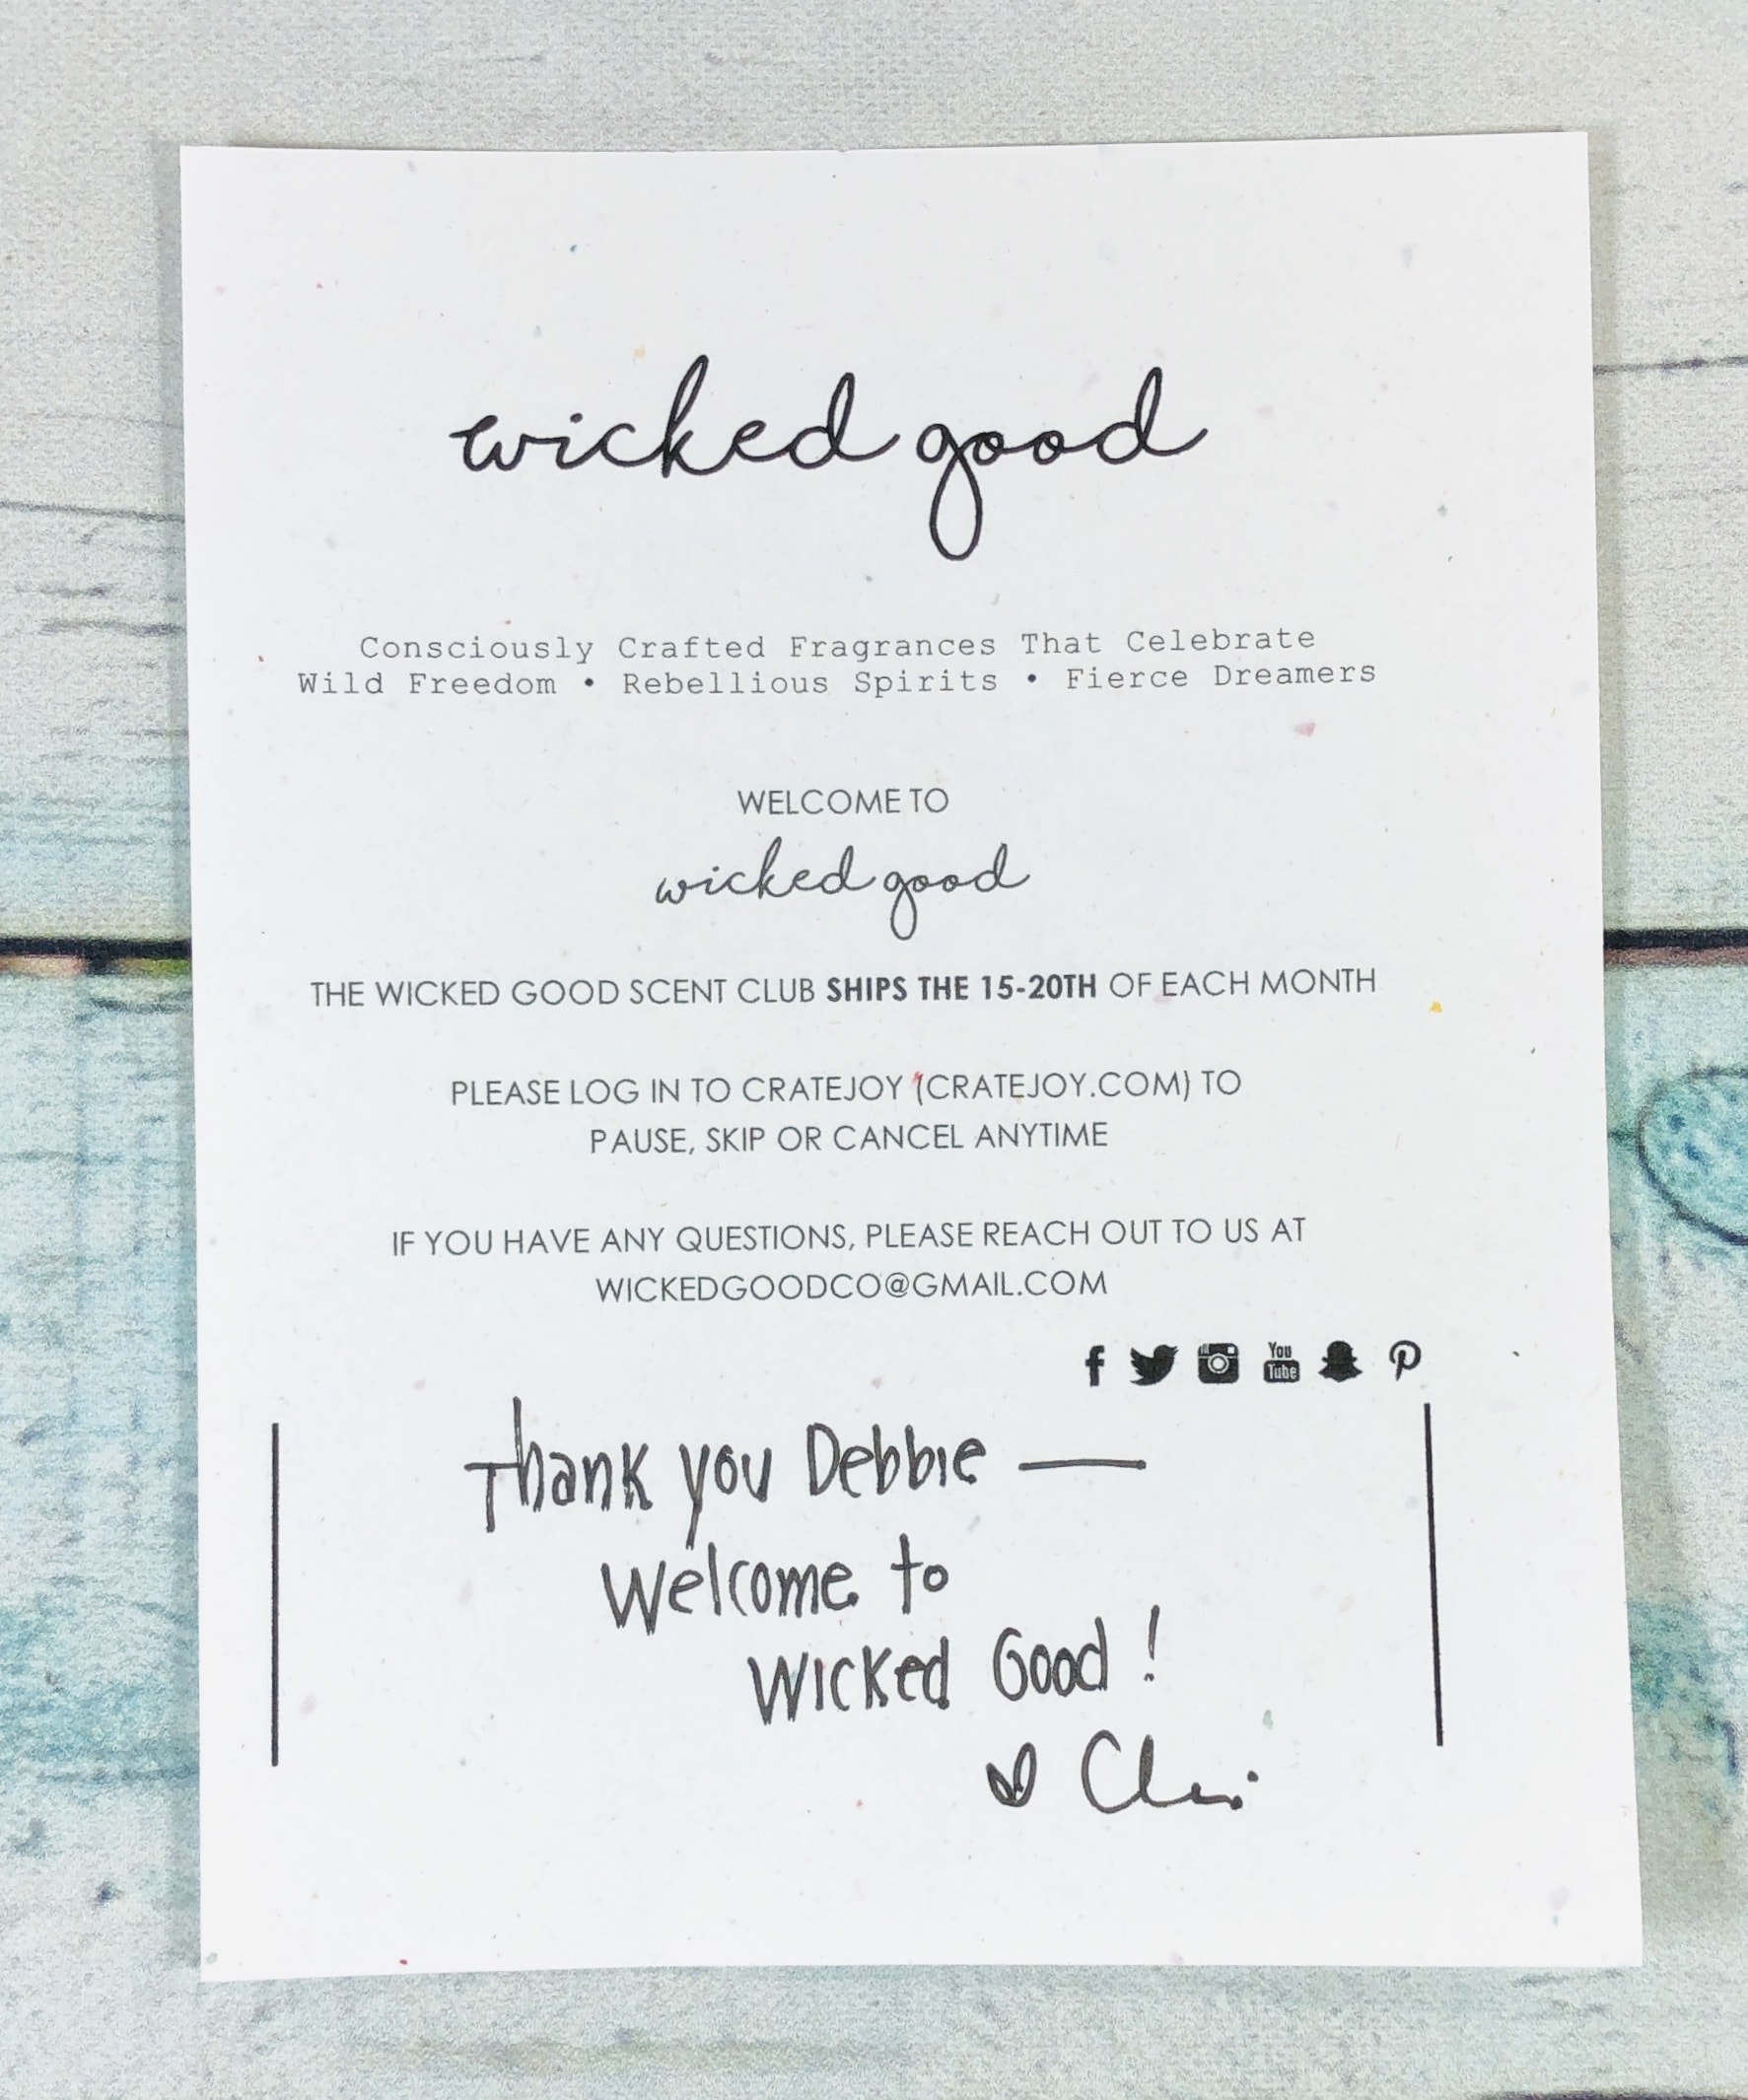 wicked good
Consciously Crafted Fragrances That Celebrate
Wild Freedom • Rebellious Spirits • Fierce Dreamers
WELCOME TO
wicked good
THE WICKED GOOD SCENT CLUB SHIPS THE 15-20TH OF EACH MONTH
PLEASE LOG IN TO CRATEJOY (CRATEJOY.COM) TO
PAUSE, SKIP OR CANCEL ANYTIME
IF YOU HAVE ANY QUESTIONS, PLEASE REACH OUT TO US AT
WICKEDGOODCO@GMAIL.COM
You
Tube
Thank you Debbie —
Welcome to
Wicked Good!